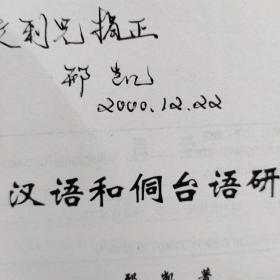 利兄指正
邢凯
2000.12.22
汉语和侗台语研
邢 凯 著